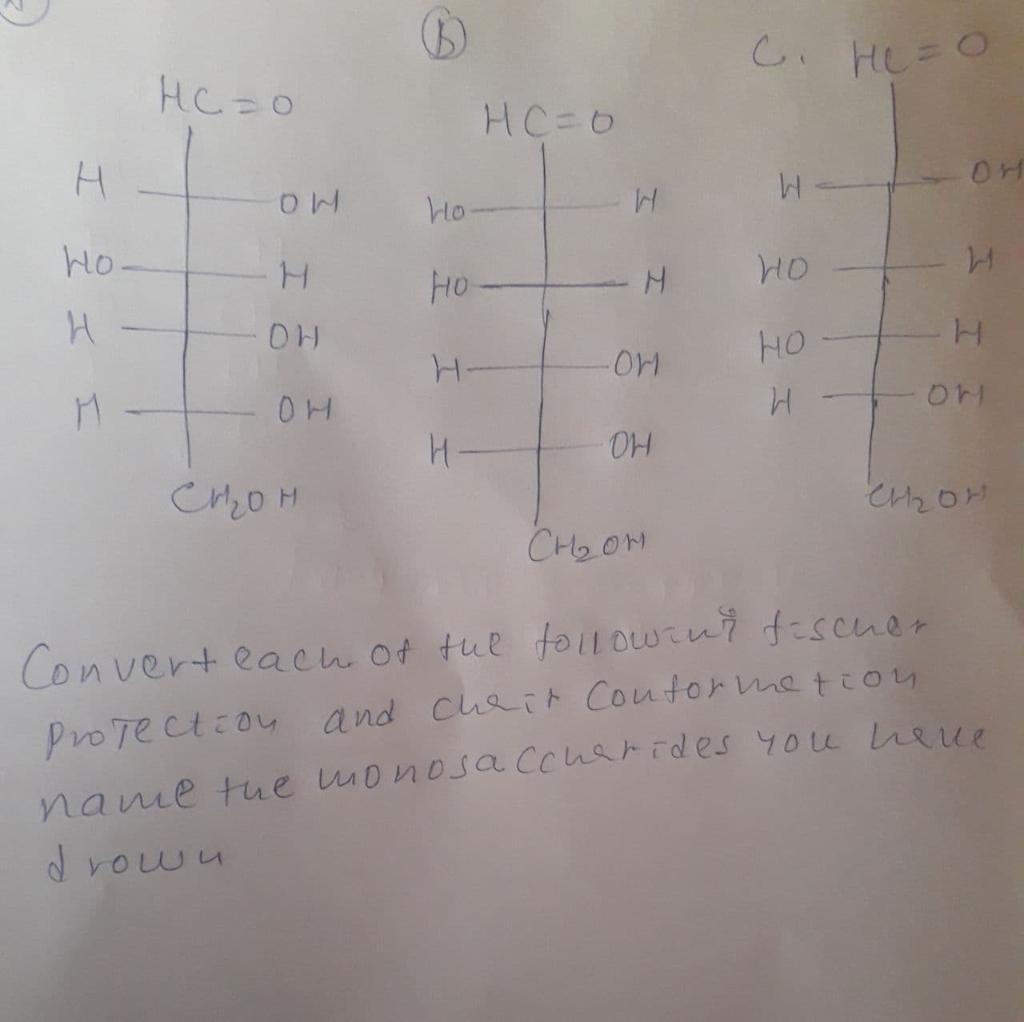 HC=O
H OH
HO H
H OH
H OH
CH2OH
(b)
HC=O
HO H
HO H
H OH
H OH
CH2OH
C. HC=O
H OH
HO H
HO H
H OH
CH2OH
Convert each of the following fischer
projection and chair conformation
name the monosaccharides you have
drown